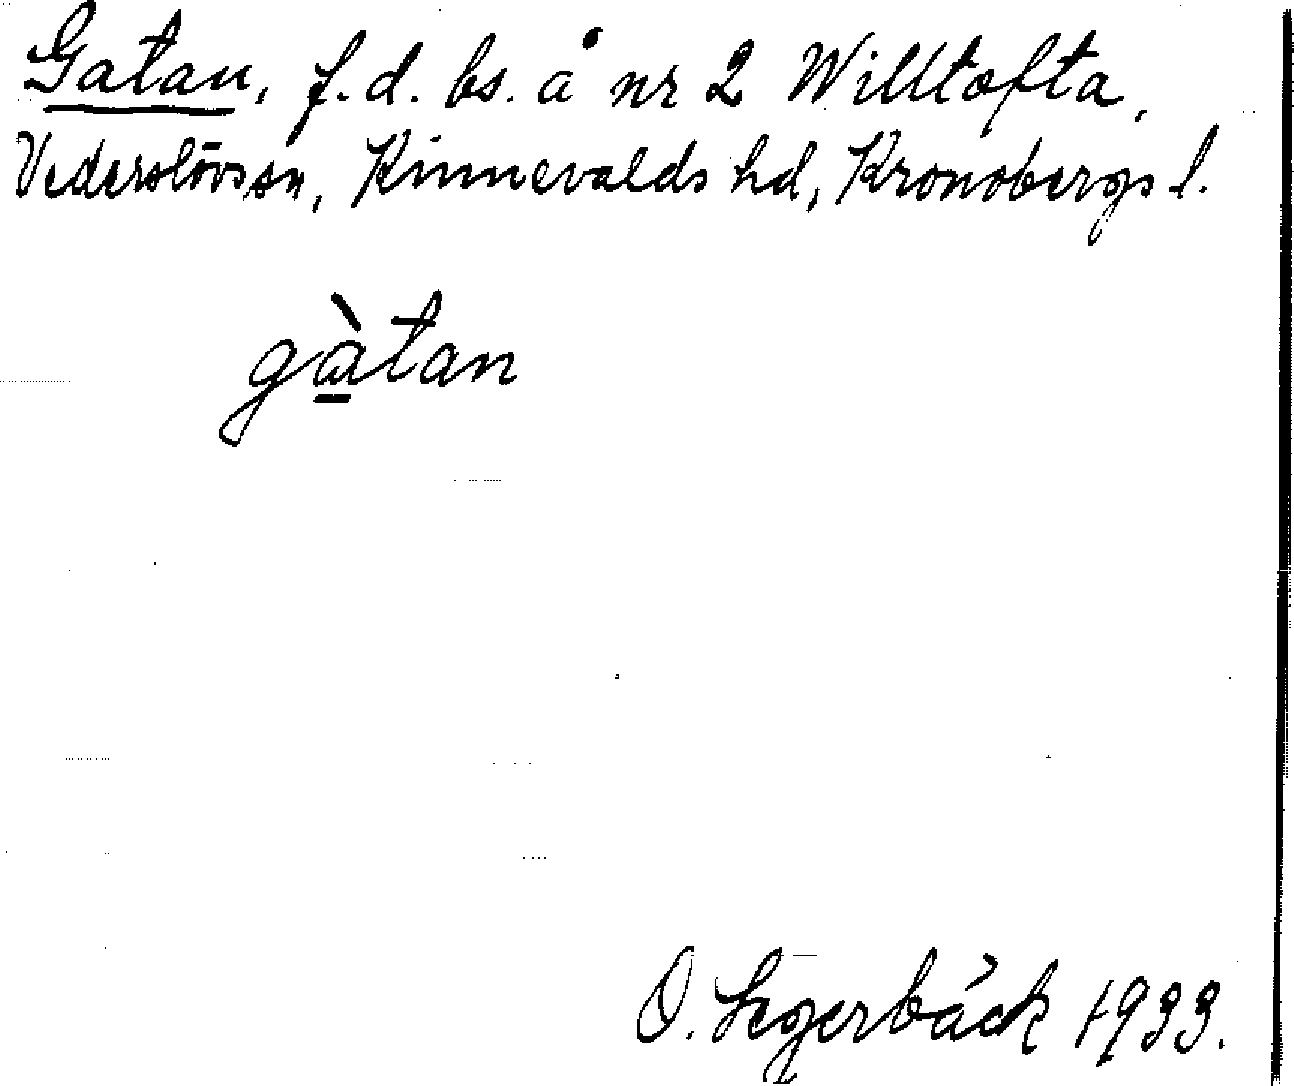 Gatan, f.d. bs. å nr 2 Willtofta,
Vederslövs sn, Kinnevalds hd, Kronobergs l.
gà̲tan
O. Segerbäck 1933.